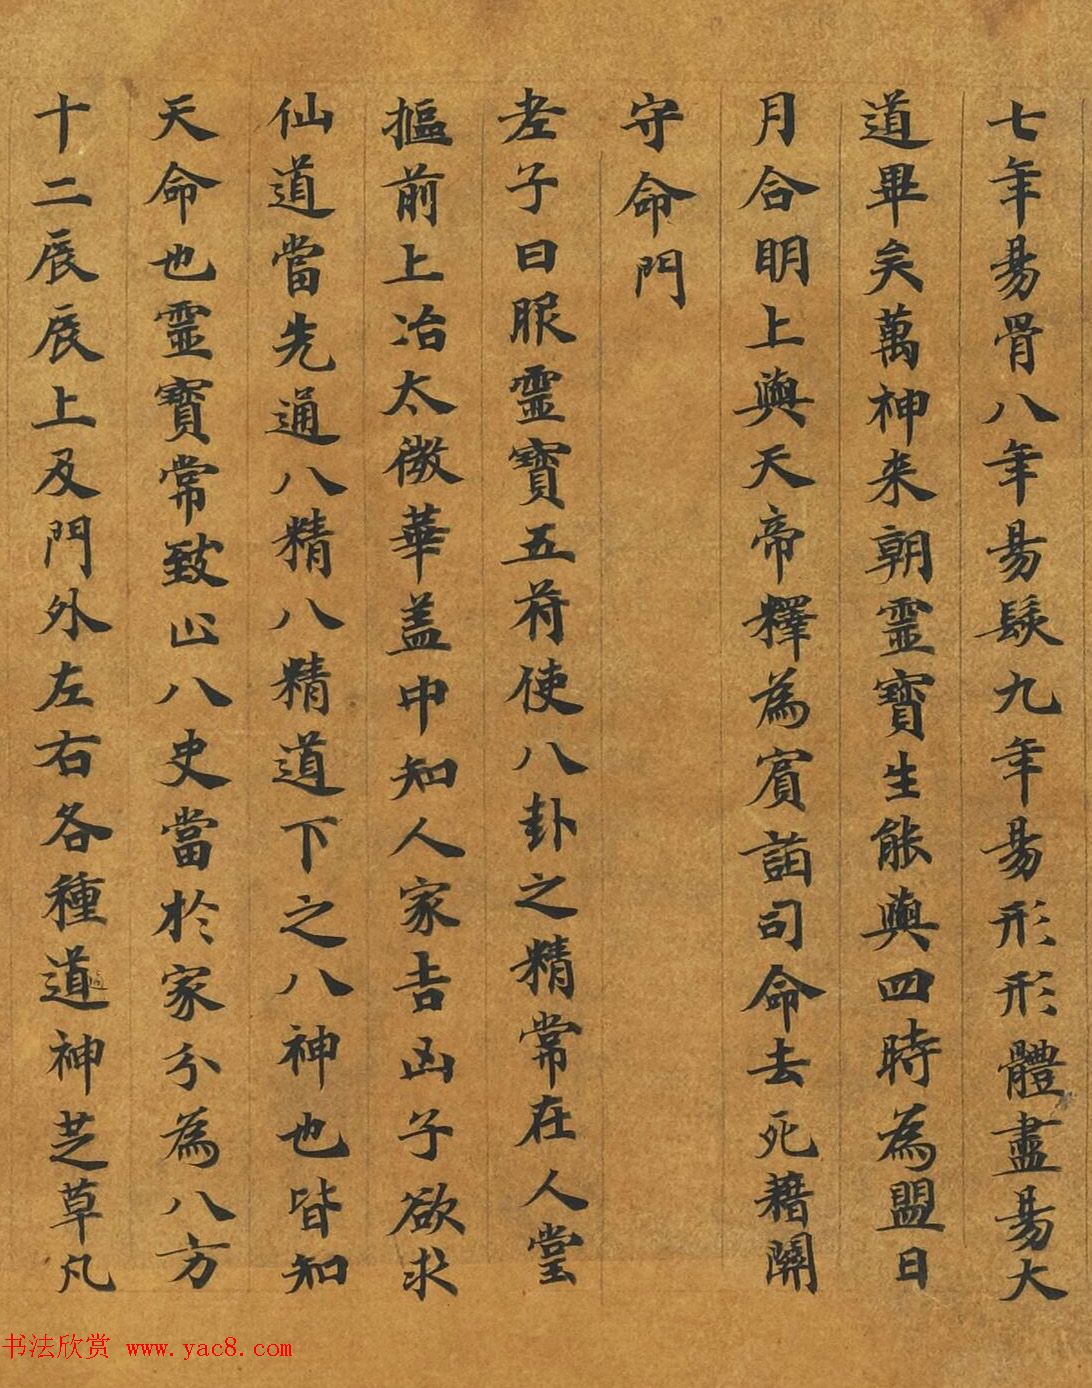 七年易骨八年易髮九年易形形體盡易大
道畢矣萬神来朝靈寶生能與四時為盟日
月合明上與天帝釋為賓詣司命去死藉關
守命門
老子曰服靈寶五苻使八卦之精常在人堂
摳前上冶太微華盖中知人家吉凶子欲求
仙道當先通八精八精道下之八神也皆知
天命也靈寶常致八史當於家分為八方
十二辰辰上及門外左右各種道神芝草凡
书法欣赏 www.yac8.com